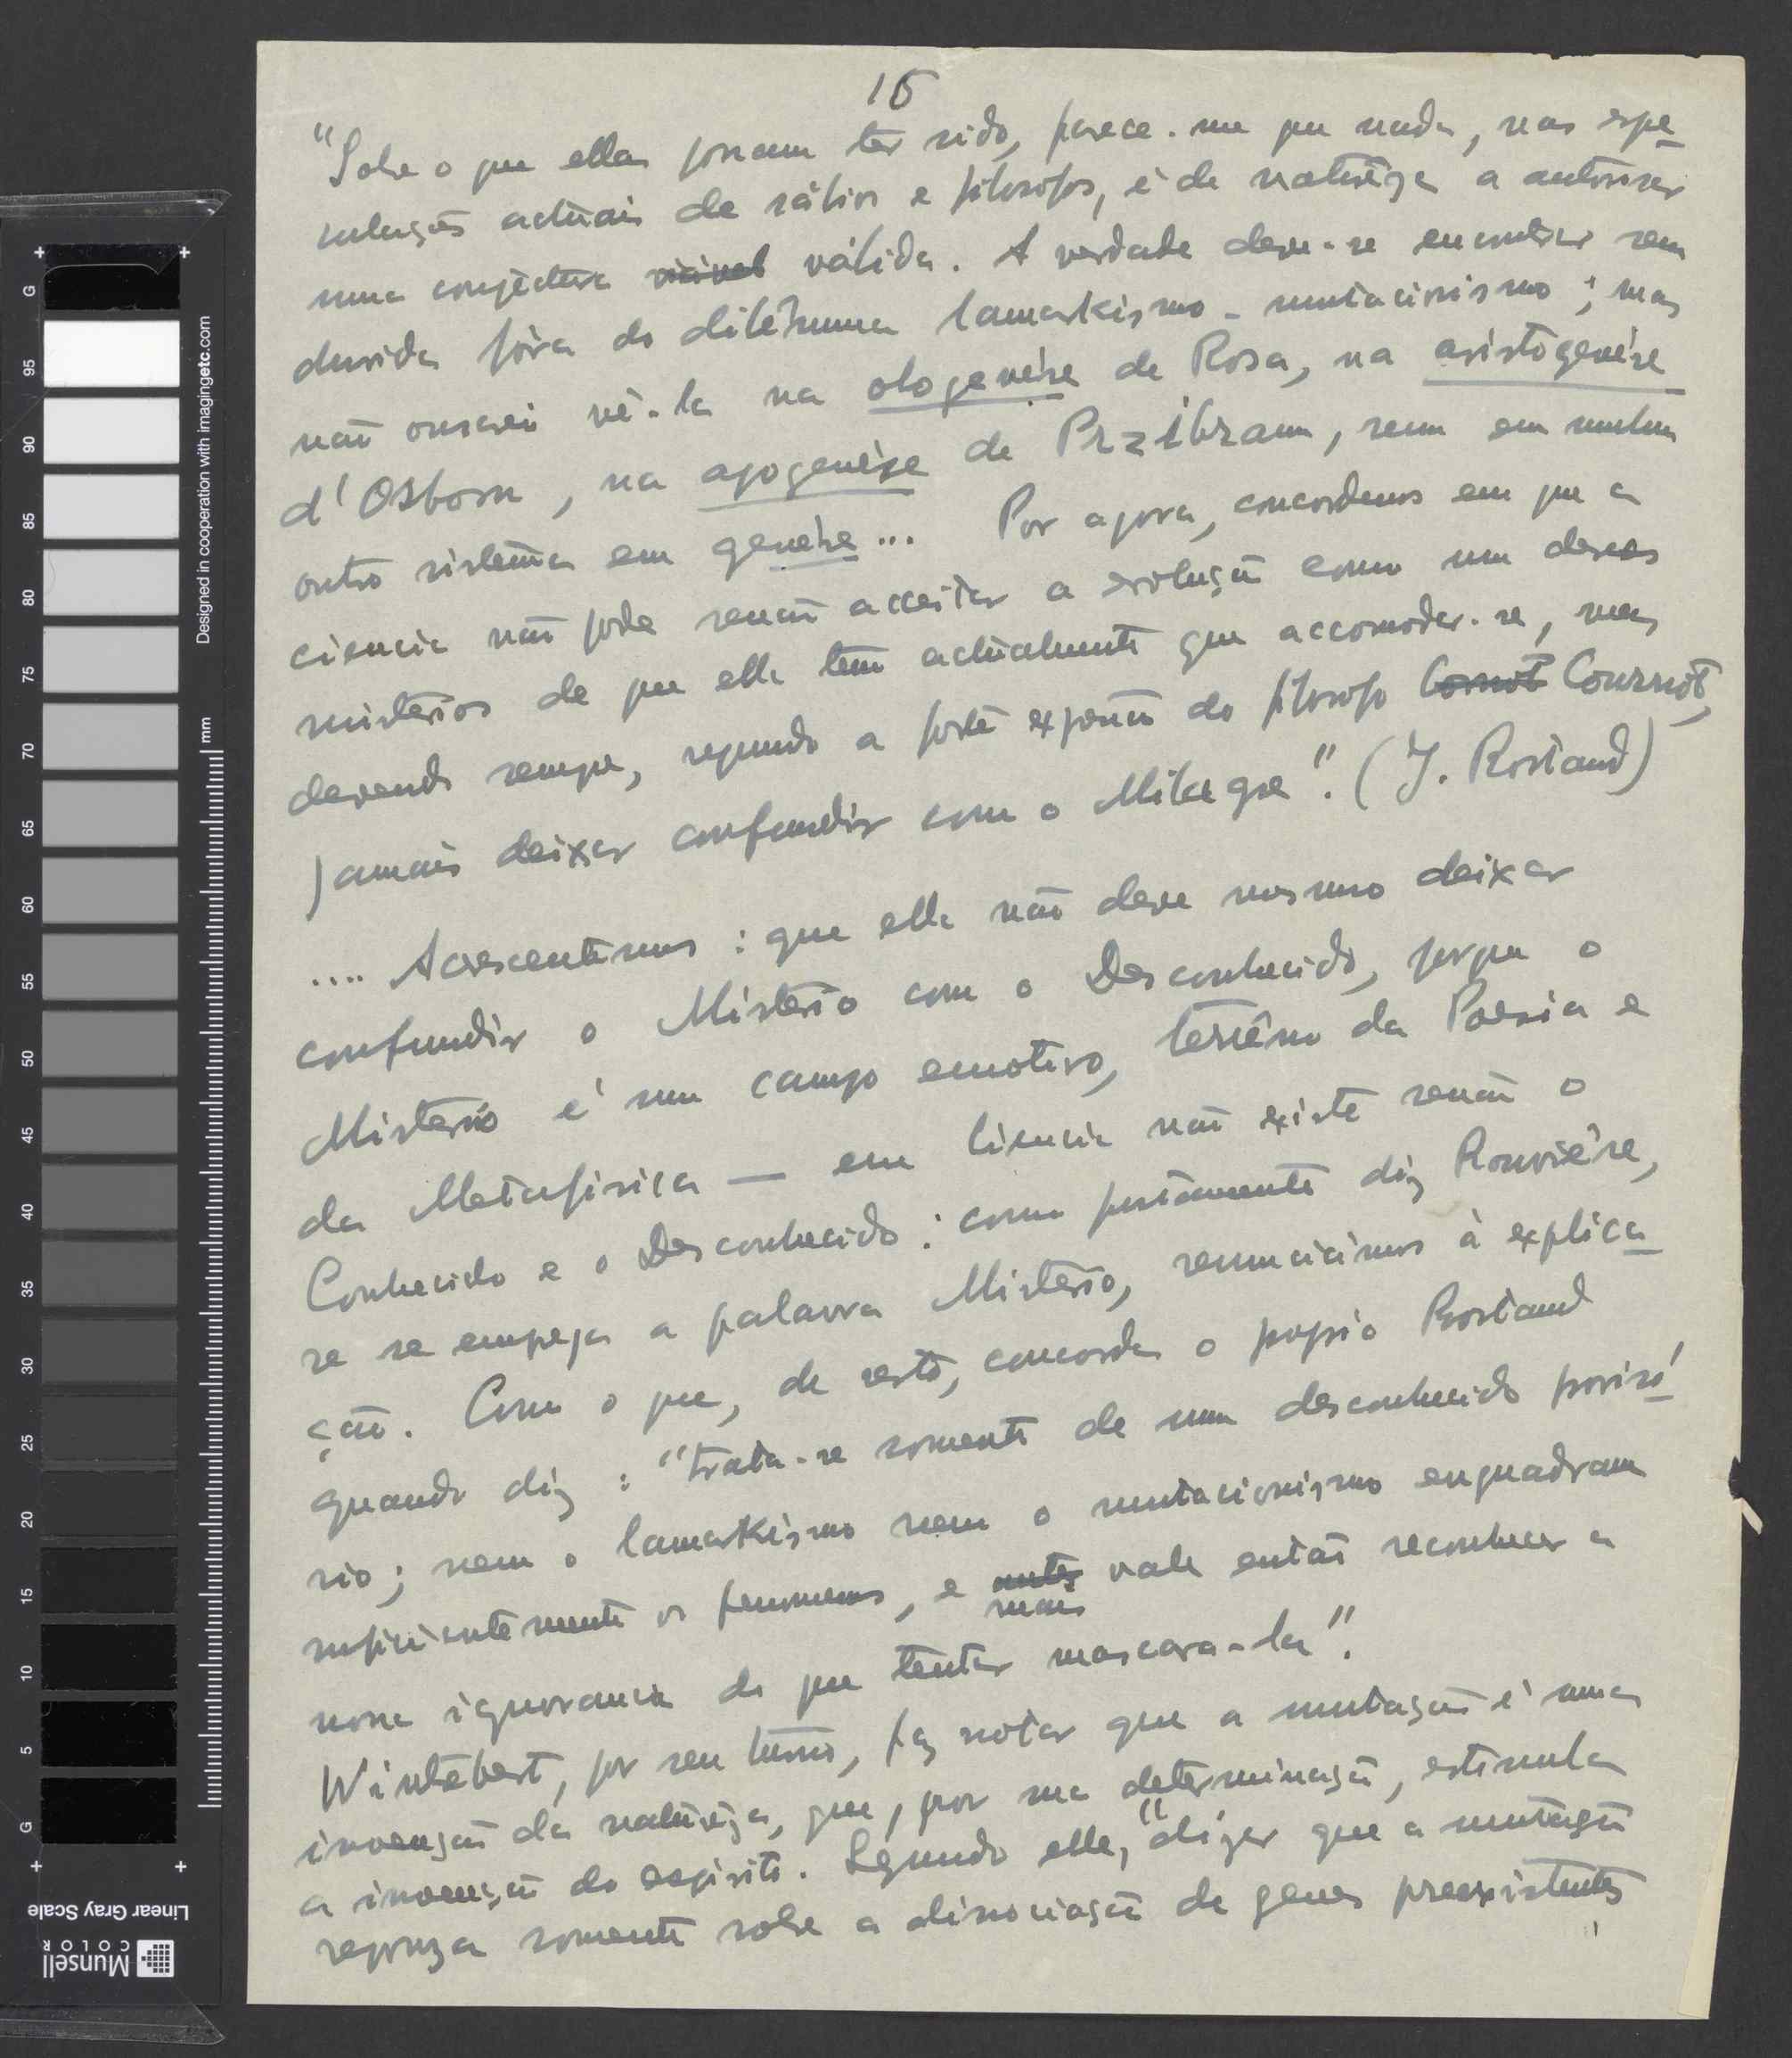 15
"Sobre o que ellas possam ter sido, parece-me que nada, nas espe-
culações actuais de sábios e filosofos, é de naturêza a autorisar
uma conjectura viável válida. A verdade deve-se encontrar sem
duvida fóra do dilêmma lamarkismo-mutacionismo; mas
não ousarei vê-la na ologenése de Rosa, na aristogenése
d'Osborn, na apogenése de Przibram, nem em nenhum
outro sistema em genése... Por agora, concordemos em que a
ciencia não pode senão acceitar a evolução como um desses
misterios de que ella tem actualmente que accomodar-se, mas
devendo sempre, segundo a forte expressão do filosofo Cornot Cournot,
jamais deixar confundir com o Milagre". (J. Rostand)
.... Acrescentemos: que ella não deve mesmo deixar
confundir o Misterio com o Desconhecido, porque o
Misterio é um campo emotivo, terrêno da Poesia e
da Metafisica — em Ciencia não existe senão o
Conhecido e o Desconhecido: como justamente diz Rouviére,
se se emprega a palavra Misterio, renunciamos à explica-
ção. Com o que, de resto, concorda o proprio Rostand
quando diz: "trata-se somente de um desconhecido provisó-
rio; nem o lamarkismo nem o mutacionismo enquadram
suficientemente os fenomenos, e antes vale então reconhecer a
mais
nossa ignorancia do que tentar mascara-la".
Wintebert, por seu turno, faz notar que a mutação é uma
invenção da naturêza, que, por sua determinação, estimula
a invenção do espirito. Segundo elle, "dizer que a mutação
repouza somente sobre a dissociação de genes preexistentes